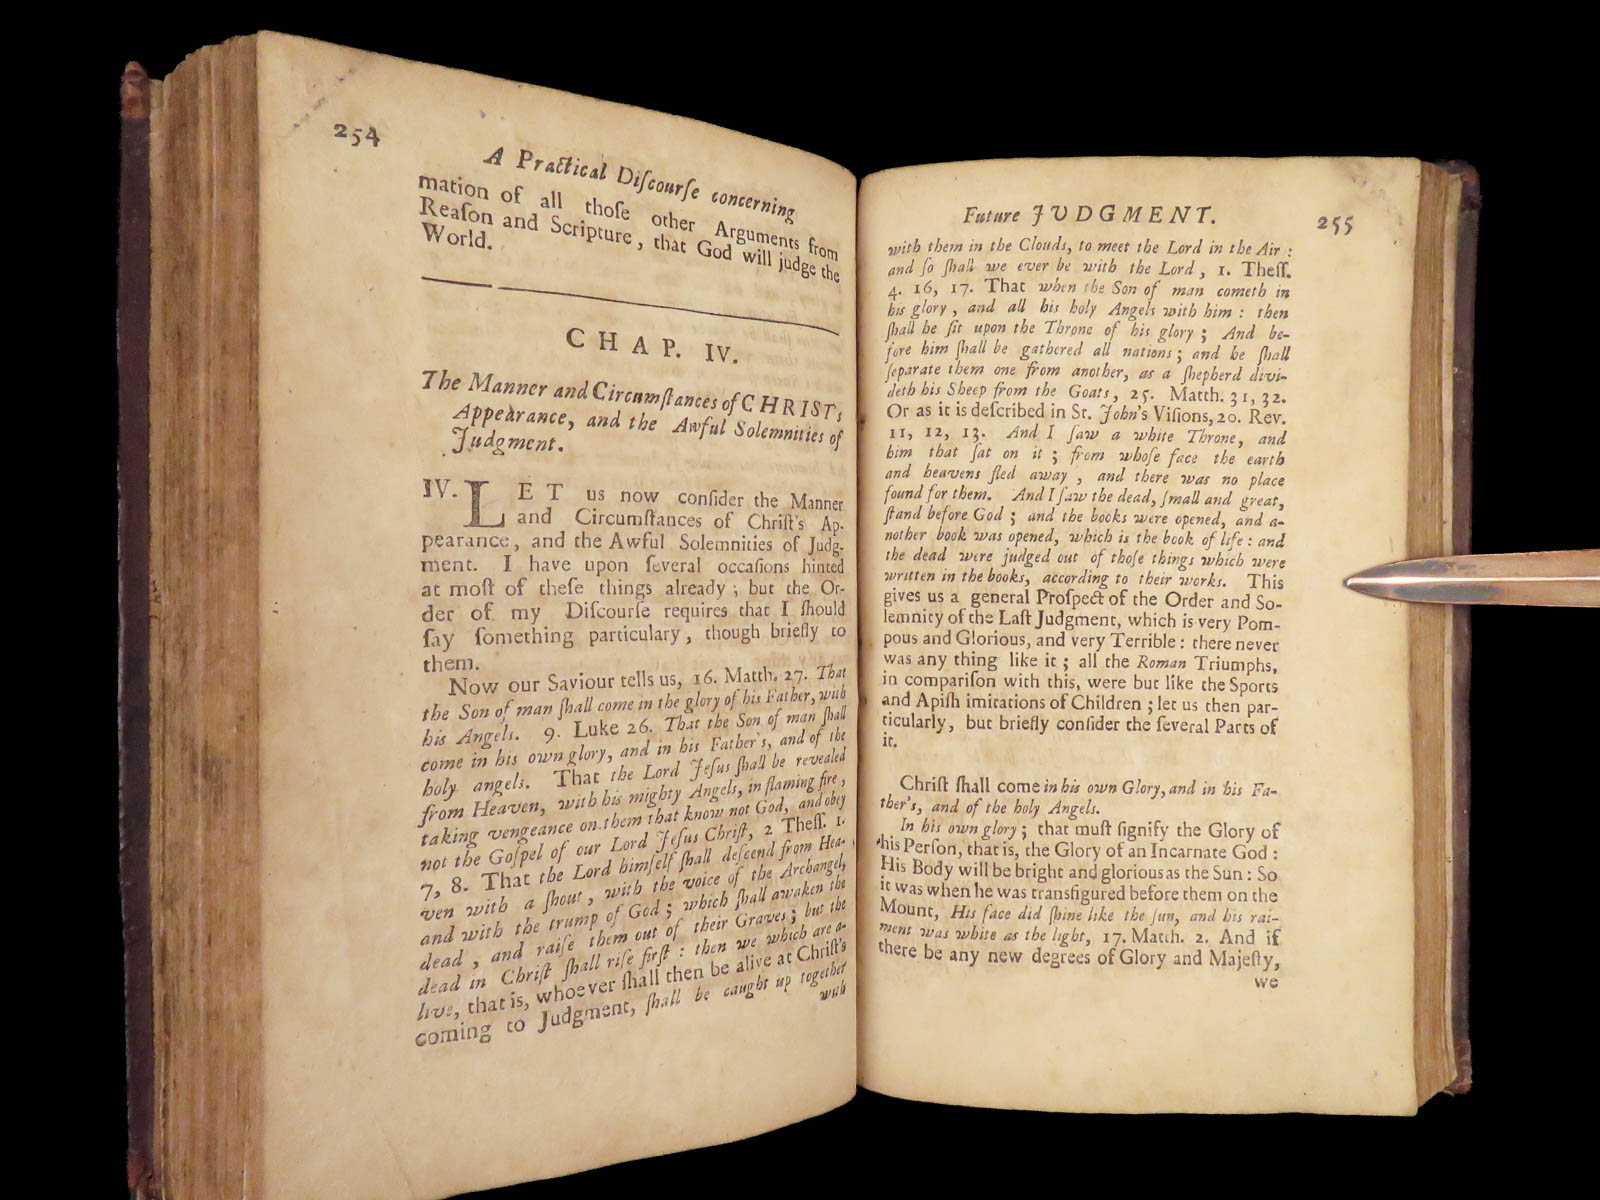 254
A Practical Diſcourſe concerning
mation of all thoſe other Arguments from
Reaſon and Scripture, that God will judge the
World.
CHAP. IV.
The Manner and Circumſtances of CHRISTs
Appearance, and the Awful Solemnities of
Judgment.
IV. LET us now conſider the Manner
and Circumſtances of Chriſt's Ap-
pearance, and the Awful Solemnities of Judg-
ment. I have upon ſeveral occaſions hinted
at moſt of theſe things already; but the Or-
der of my Diſcourſe requires that I ſhould
ſay ſomething particulary, though briefly to
them.
Now our Saviour tells us, 16. Matth. 27. That
the Son of man ſhall come in the glory of his Father, with
his Angels. 9. Luke 26. That the Son of man ſhall
come in his own glory, and in his Father's, and of the
holy angels. That the Lord Jeſus ſhall be revealed
from Heaven, with his mighty Angels, in flaming fire,
taking vengeance on them that know not God, and obey
not the Goſpel of our Lord Jeſus Chriſt, 2 Theſſ. 1.
7, 8. That the Lord himſelf ſhall deſcend from Hea-
ven with a ſhout, with the voice of the Archangel,
and with the trump of God; which ſhall awaken the
dead, and raiſe them out of their Graves; but the
dead in Chriſt ſhall riſe firſt: then we which are a-
live, that is, whoever ſhall then be alive at Chriſt's
coming to Judgment, ſhall be caught up together
with
Future JUDGMENT.
255
with them in the Clouds, to meet the Lord in the Air:
and ſo ſhall we ever be with the Lord, 1. Theſſ.
4. 16, 17. That when the Son of man cometh in
his glory, and all his holy Angels with him: then
ſhall he ſit upon the Throne of his glory; And be-
fore him ſhall be gathered all nations; and he ſhall
ſeparate them one from another, as a ſhepherd divi-
deth his Sheep from the Goats, 25. Matth. 31, 32.
Or as it is deſcribed in St. John's Viſions, 20. Rev.
11, 12, 13. And I ſaw a white Throne, and
him that ſat on it; from whoſe face the earth
and heavens fled away, and there was no place
found for them. And I ſaw the dead, ſmall and great,
ſtand before God; and the books were opened, and a-
nother book was opened, which is the book of life: and
the dead were judged out of thoſe things which were
written in the books, according to their works. This
gives us a general Proſpect of the Order and So-
lemnity of the Laſt Judgment, which is very Pom-
pous and Glorious, and very Terrible: there never
was any thing like it; all the Roman Triumphs,
in compariſon with this, were but like the Sports
and Apiſh imitations of Children; let us then par-
ticularly, but briefly conſider the ſeveral Parts of
it.
Chriſt ſhall come in his own Glory, and in his Fa-
ther's, and of the holy Angels.
In his own glory; that muſt ſignify the Glory of
his Perſon, that is, the Glory of an Incarnate God:
His Body will be bright and glorious as the Sun: So
it was when he was transfigured before them on the
Mount, His face did ſhine like the ſun, and his rai-
ment was white as the light, 17. Matth. 2. And if
there be any new degrees of Glory and Majeſty,
we